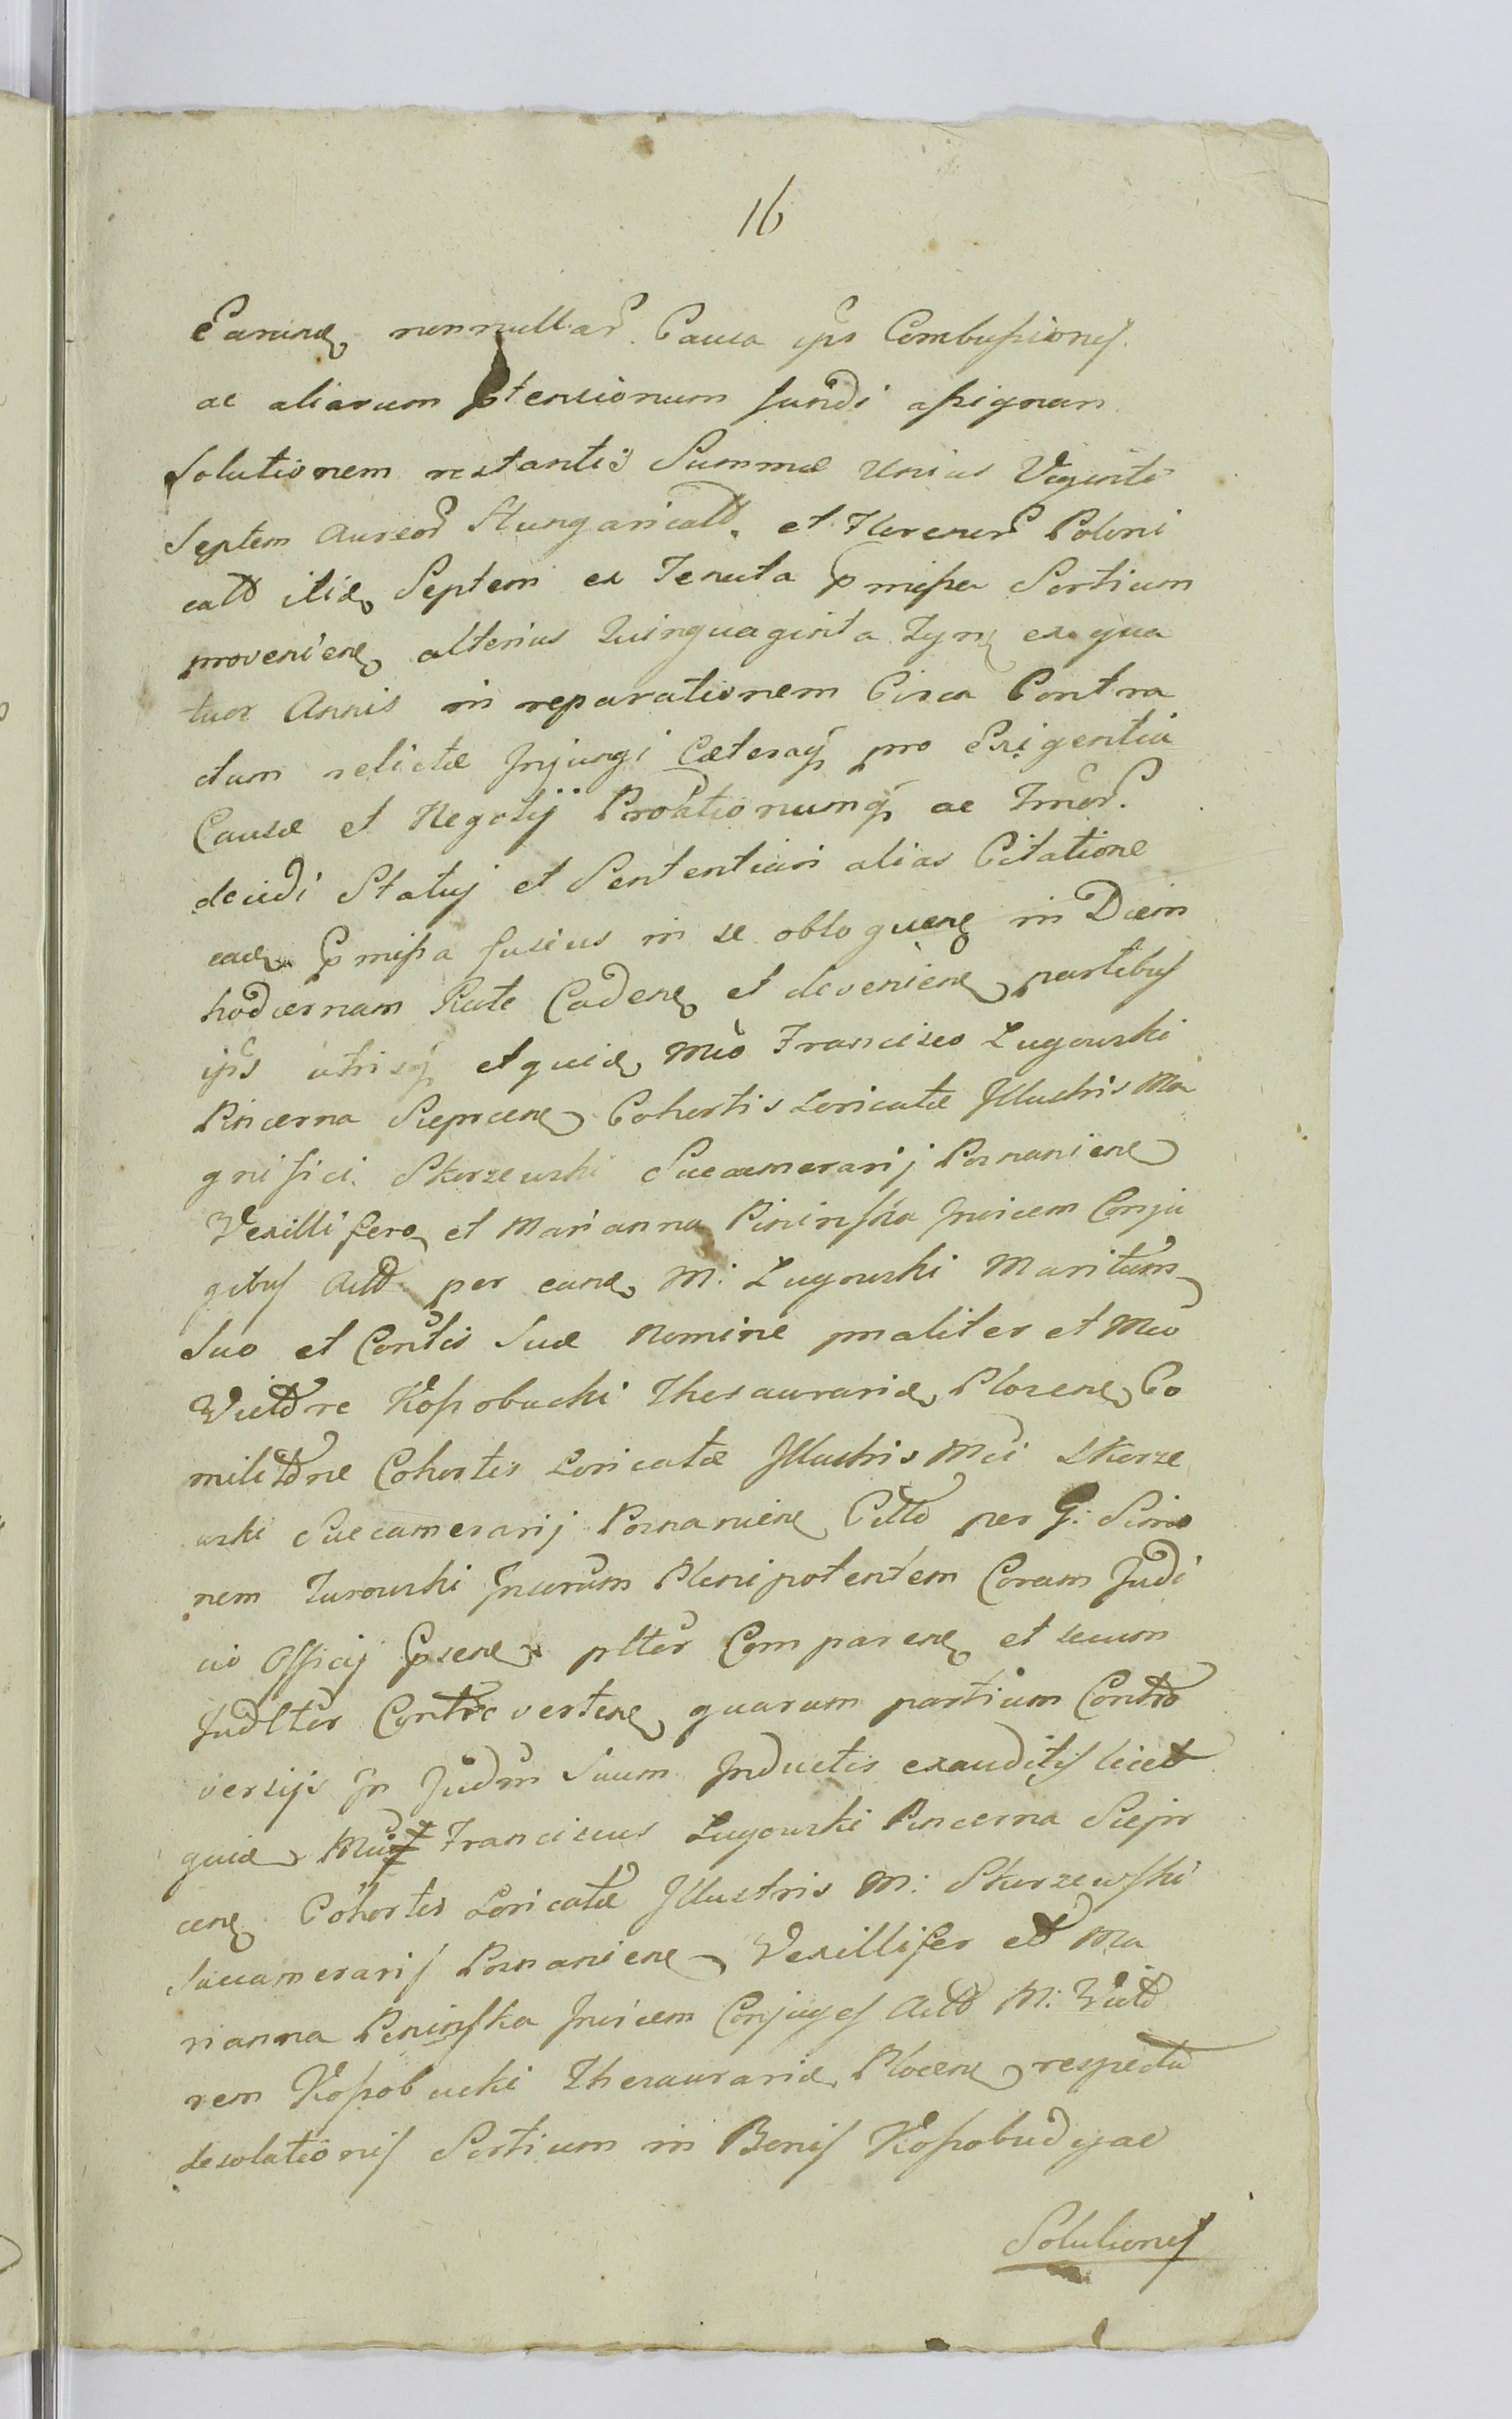 16
Earund nonnullar. Causa ips Combussionis.
ac aliarum ptensionum fundi assignan
Solutionem restantis Summæ Unius Viginti
Septem Aureor Hungaricall. et Florenor Poloni
call itid Septem ex Tenuta pmissa Sortium
provenien alterius Quinquaginta Tyn ex qua
tuor Annis in reparationem Circa Contra
ctum relictæ Injungi Cæteraq pro Exigentia
Causæ et Negotij Proationumq ac Tmor.
decidi Statuj et Sententiari alias Citatione
ead pmissa fusius in se obloquen in Diem
hodiernam Rate Caden et devenien partibus
ips utrisq et quid Mco Francisco Lugowski
Pincerna Sieprcen Cohortis Loricatæ Illustris Ma
gnifici Skorzewski Succamerarij Posnanien
Vexillifero et Marianna Pininska Invicem Conju
gibus Actt per eund M: Lugowski Maritum
Suo et Contis Suæ Nomine pnaliter et Mco
Victtre Kossobucki Thesaurarid Plocen Co
milittne Cohortis Loricatæ Illustris Mci Skorze
wski Succamerarij Posnanien Citto per G: Simo
nem Turowski Insorum Plenipotentem Coram Judi
cio Officij Psen pltter Comparen et secum
Judltter Controverten quarum partium Contro
versijs In Judm Suum Inductis exauditis licet
quid Mcus Franciscus Lugowski Pincerna Siepr
cen Cohortis Loricatæ Illustris M: Skorzewski
Succamerarij Posnanien Vexillifer et Ma
rianna Pininska Invicem Conjuges Actt M: Victt
rem Kossobucki Thesaurarid Plocen respectu
desolationis Sortium in Bonis Kossobudy ac
Solutionis